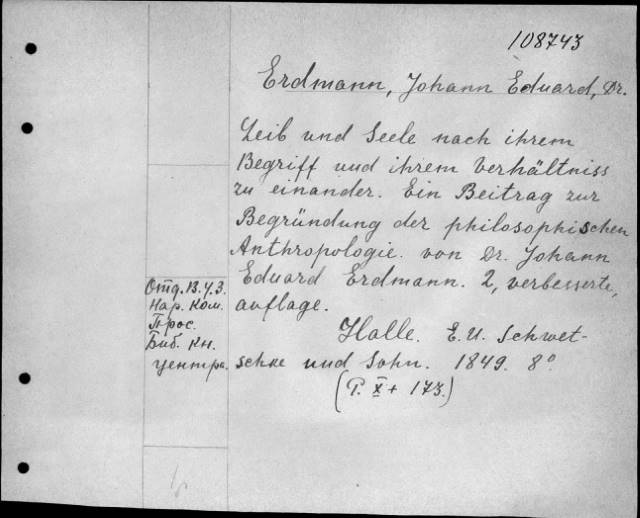 108743
Erdmann, Johann Eduard, Dr.
Leib und Seele nach ihrem
Begriff und ihrem Verhältniss
zu einander. Ein Beitrag zur
Begründung der philosophischen
Anthropologie. von Dr. Johann
Eduard Erdmann. 2, verbesserte,
auflage.
Halle. E. U. Schwet-
schke und Sohn. 1849. 8°
(P. X + 173.)
Отд. 13.4.3.
Нар. Ком.
Прос.
Биб. кн.
центра.